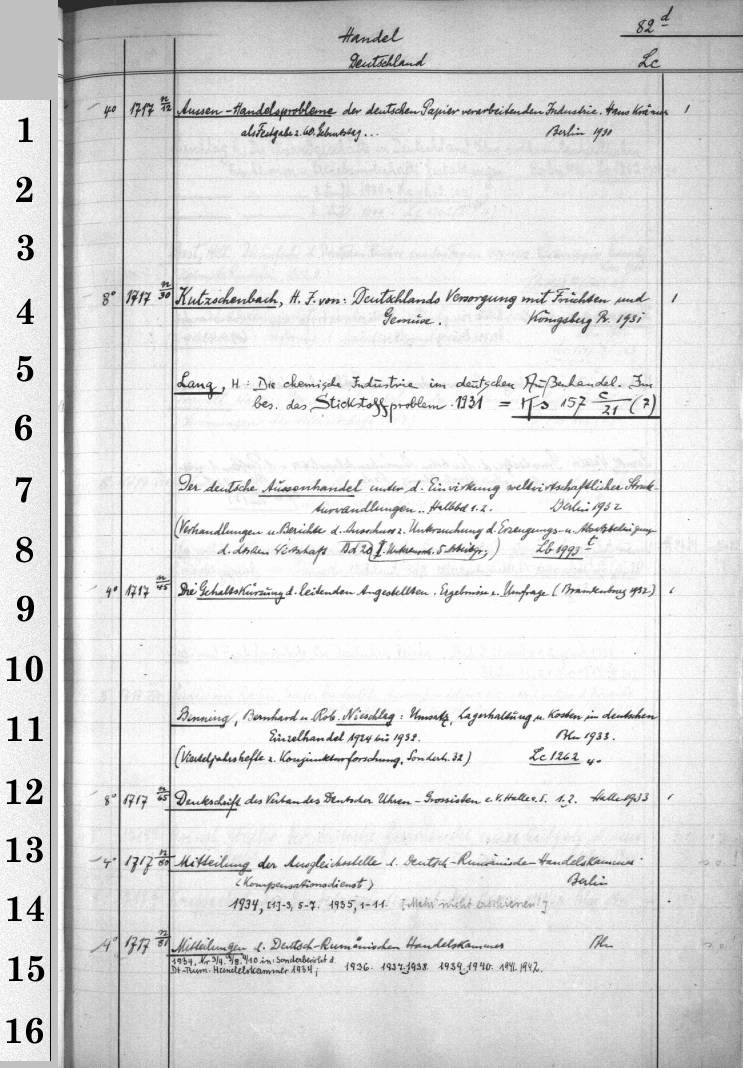 82 d
Handel
Deutschland
Lc
4° 1717 n/12 Aussen-Handelsprobleme der deutschen Papier verarbeitenden Industrie. Hans Krämer 1
als Festgabe z. 60. Geburtstag... Berlin 1930
1
2
3
8° 1717 n/30 Kutzschenbach, H. F. von: Deutschlands Versorgung mit Früchten und 1
4
Gemüse. Königsberg Pr. 1931
5
Lang, H: Die chemische Industrie im deutschen Außenhandel. Im
bes. das Stickstoffproblem. 1931 = 157 c/21 (7)
6
7
Der deutsche Aussenhandel unter d. Einwirkung weltwirtschaftlicher Struk-
turwandlungen.. Halbbd 1.2. Berlin 1932
(Verhandlungen u. Berichte d. Ausschuss z. Untersuchung d. Erzeugungs- u. Absatzbedingungen
8
d. deutschen Wirtschaft Bd 20 I. Unterausch. 5. Arbeitsgr.) Lb 1993 t
4° 1717 n/45 Die Gehaltskürzung d. leitenden Angestellten. Ergebnisse e. Umfrage (Brandenburg 1932) 1
9
10
Benning, Bernhard u. Rob. Nieschlag: Umsatz, Lagerhaltung u. Kosten im deutschen
11
Einzelhandel 1924 bis 1932. Bln 1933.
(Vierteljahrshefte z. Konjunkturforschung, Sonderh. 32) Lc 1262 4°
12
8° 1717 n/65 Denkschrift des Verbandes Deutscher Uhren-Grossisten e.V. Halle a. S. 1.2. Halle 1933 1
13
4° 1717 n/80 Mitteilung der Ausgleichsstelle d. Deutsch-Rumänische Handelskammer.
(Kompensationsdienst) Berlin
14
1934, [1]-3, 5-7. 1935, 1-11. [Mehr nicht erschienen!]
4° 1717 n/81 Mitteilungen d. Deutsch-Rumänischen Handelskammer Bln
1934, Nr 3/4. 7/8. 9/10 in: Sonderbericht d.
15
Dt-Rum. Handelskammer 1934; 1936. 1937. 1938. 1939. 1940. 1941. 1942.
16